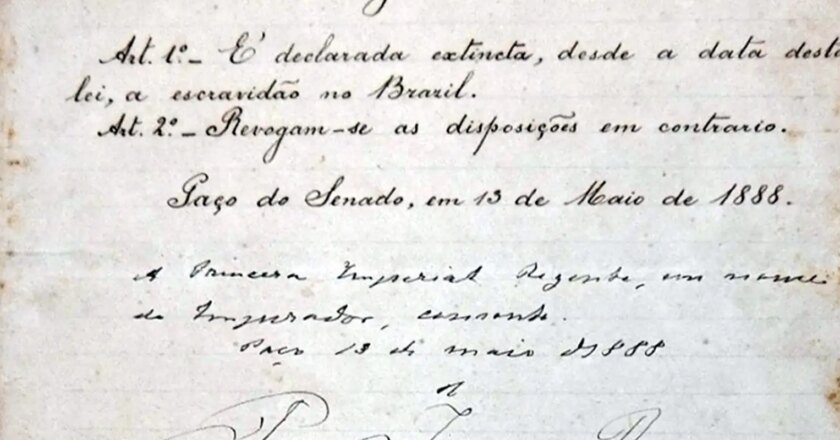 Art. 1º.- É declarada extincta, desde a data desta
lei, a escravidão no Brazil.
Art. 2º.- Revogam-se as disposições em contrario.
Paço do Senado, em 13 de Maio de 1888.
A Princeza Imperial Regente, em nome
do Imperador, consente.
Paço 13 de maio de 1888